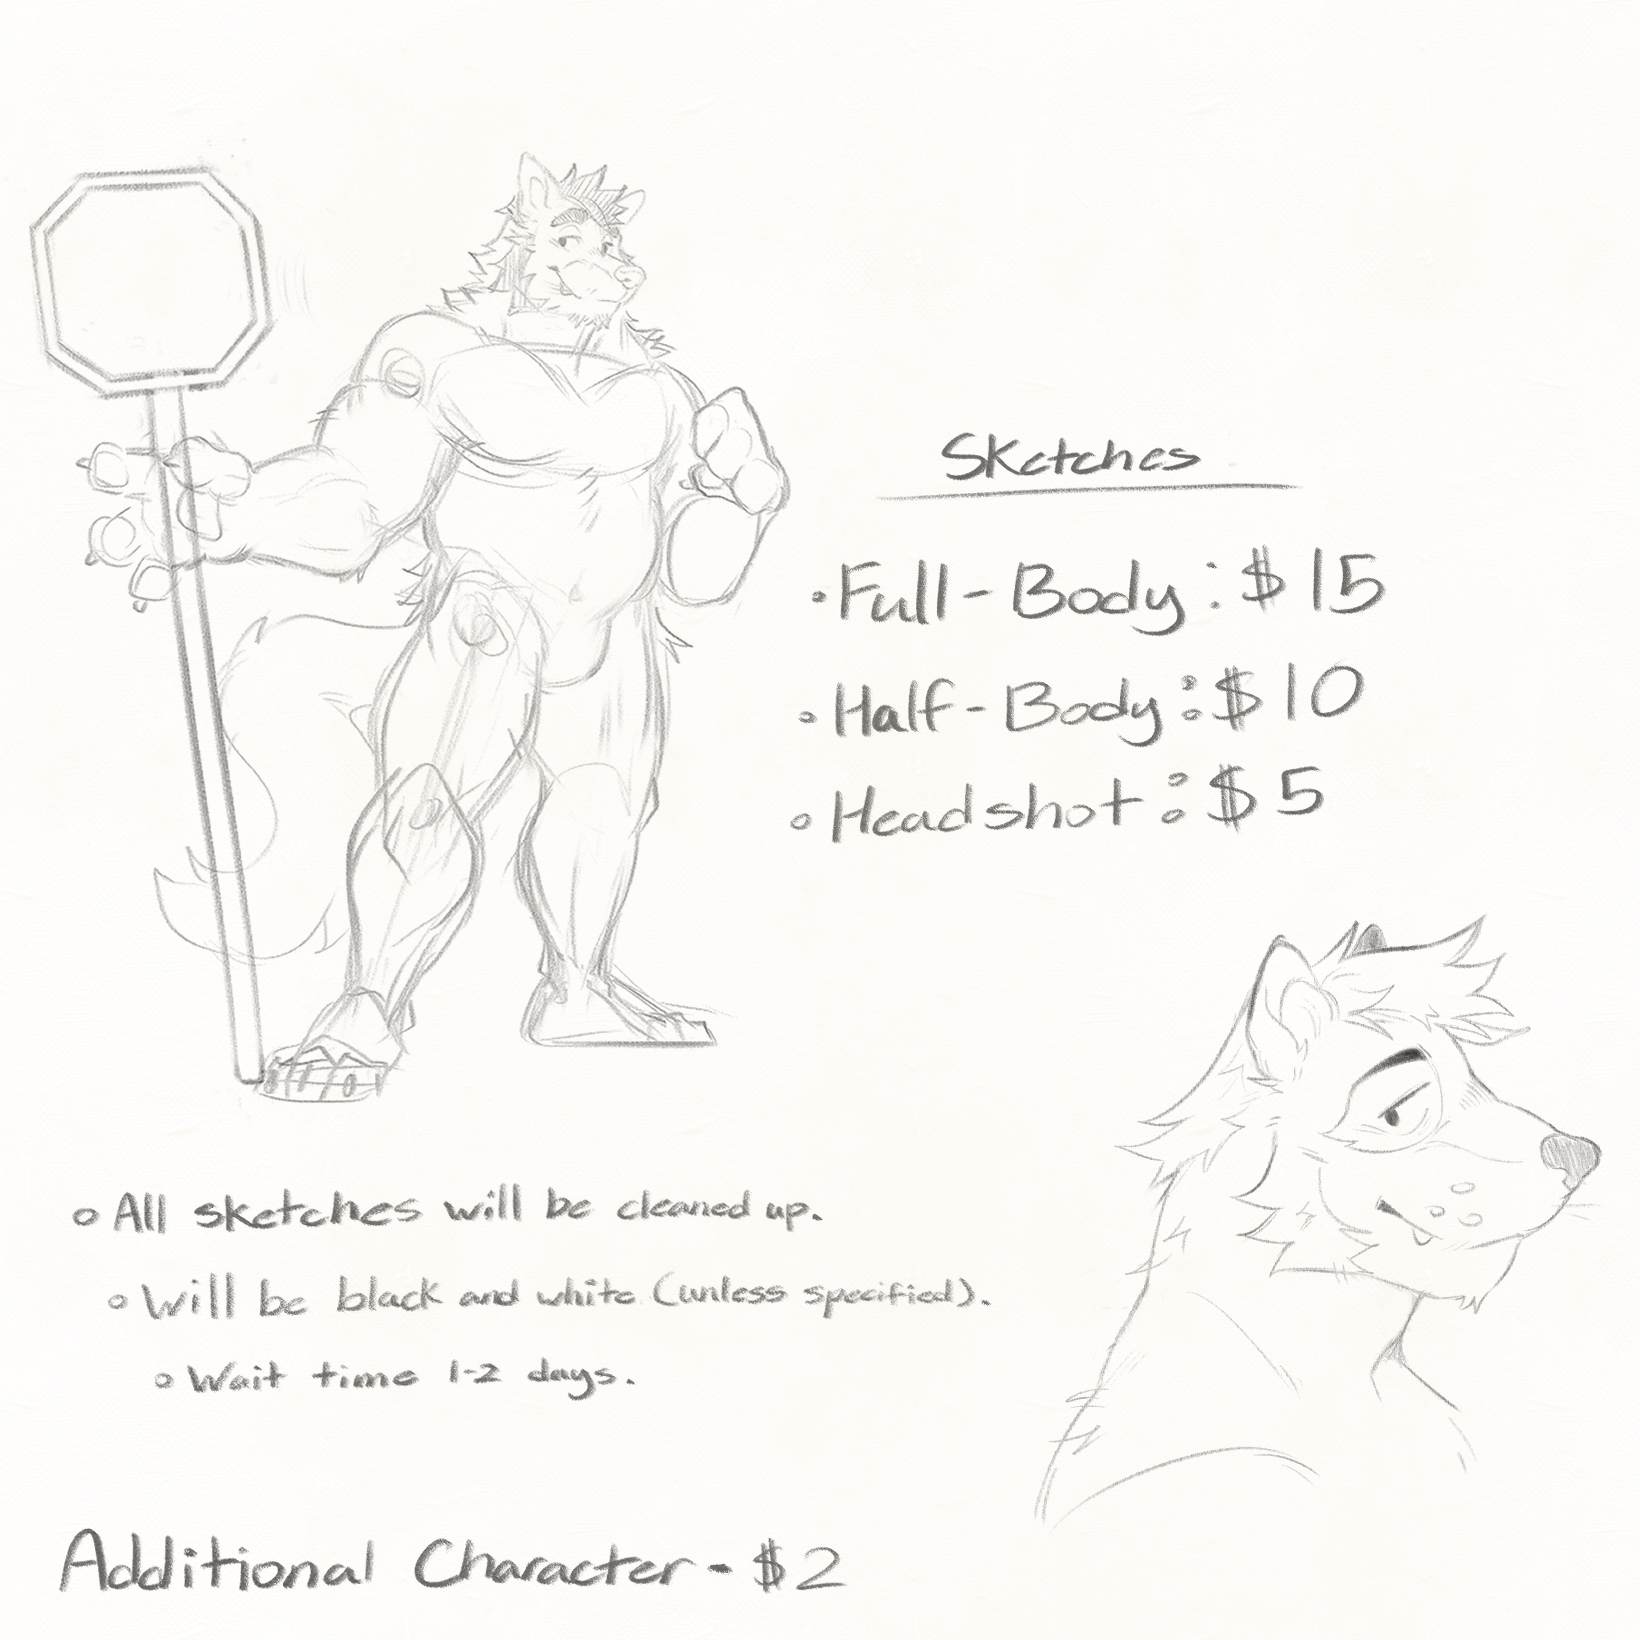 Sketches
• Full-Body: $15
• Half-Body: $10
• Headshot: $5
• All sketches will be cleaned up.
• Will be black and white (unless specified).
• Wait time 1-2 days.
Additional Character - $2